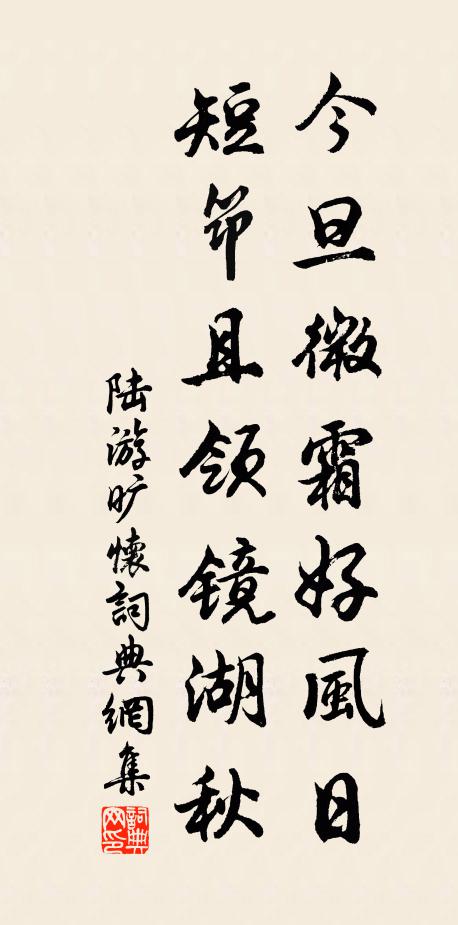 今旦微霜好風日
短笻且領鏡湖秋
陆游旷懷詞典網集
詞典網印